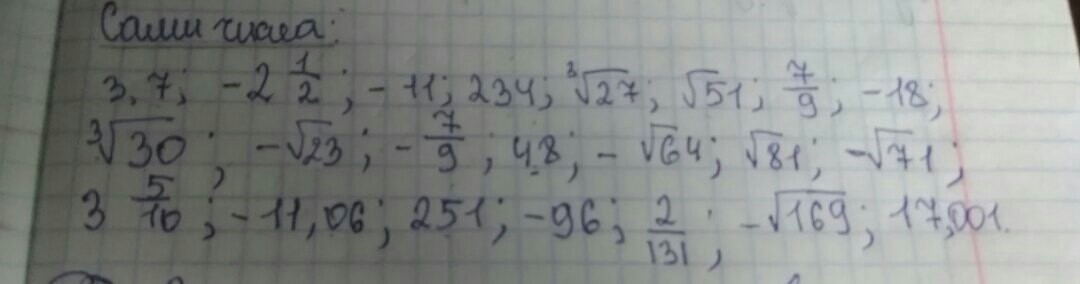 Сами числа:
3,7; -2 1/2; -11; 234; ∛27; √51; 7/9; -18;
∛30; -√23; -7/9; 48; -√64; √81; -√71;
3 5/10; -11,06; 251; -96; 2/131; -√169; 17,001.